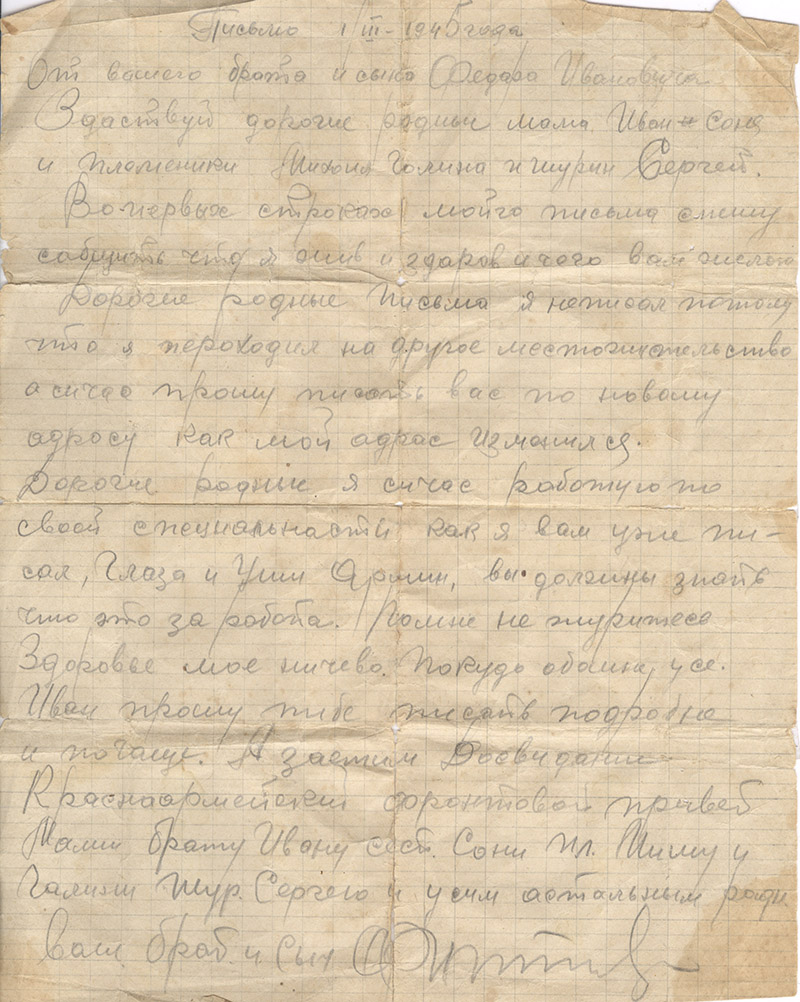 Письмо 1/III-1945 года
От вашего брата и сына Федара Ивановича
Здаствуй дорогие родные мама Иван Соня
и племеники Михаил Галина и шурин Сергей.
Во-первых строках мойго письма спешу
сабщить что я жив и здаров и чего вам желаю
Дорогие родные письма я неписал потому
что я пероходил на другое местожительство
а сичас прошу писать вас по новому
адросу как мой адрас изменился.
Дорогие родные я сичас работую по
своей специальнасти как я вам уже пи-
сал, Глаза и Уши Армии, вы должны знать
что это за работа. По мне не журитесь
Здоровье мое ничево. Покудо
Иван прошу тибе писать подробне
и почаще. А застим Досвидание
Красноармейский фронтовой привет
Мами брату Ивану сест. Сони Пл. Мишу у
Галини Шур. Сергею и усим астальным родн
ваш брат и сын